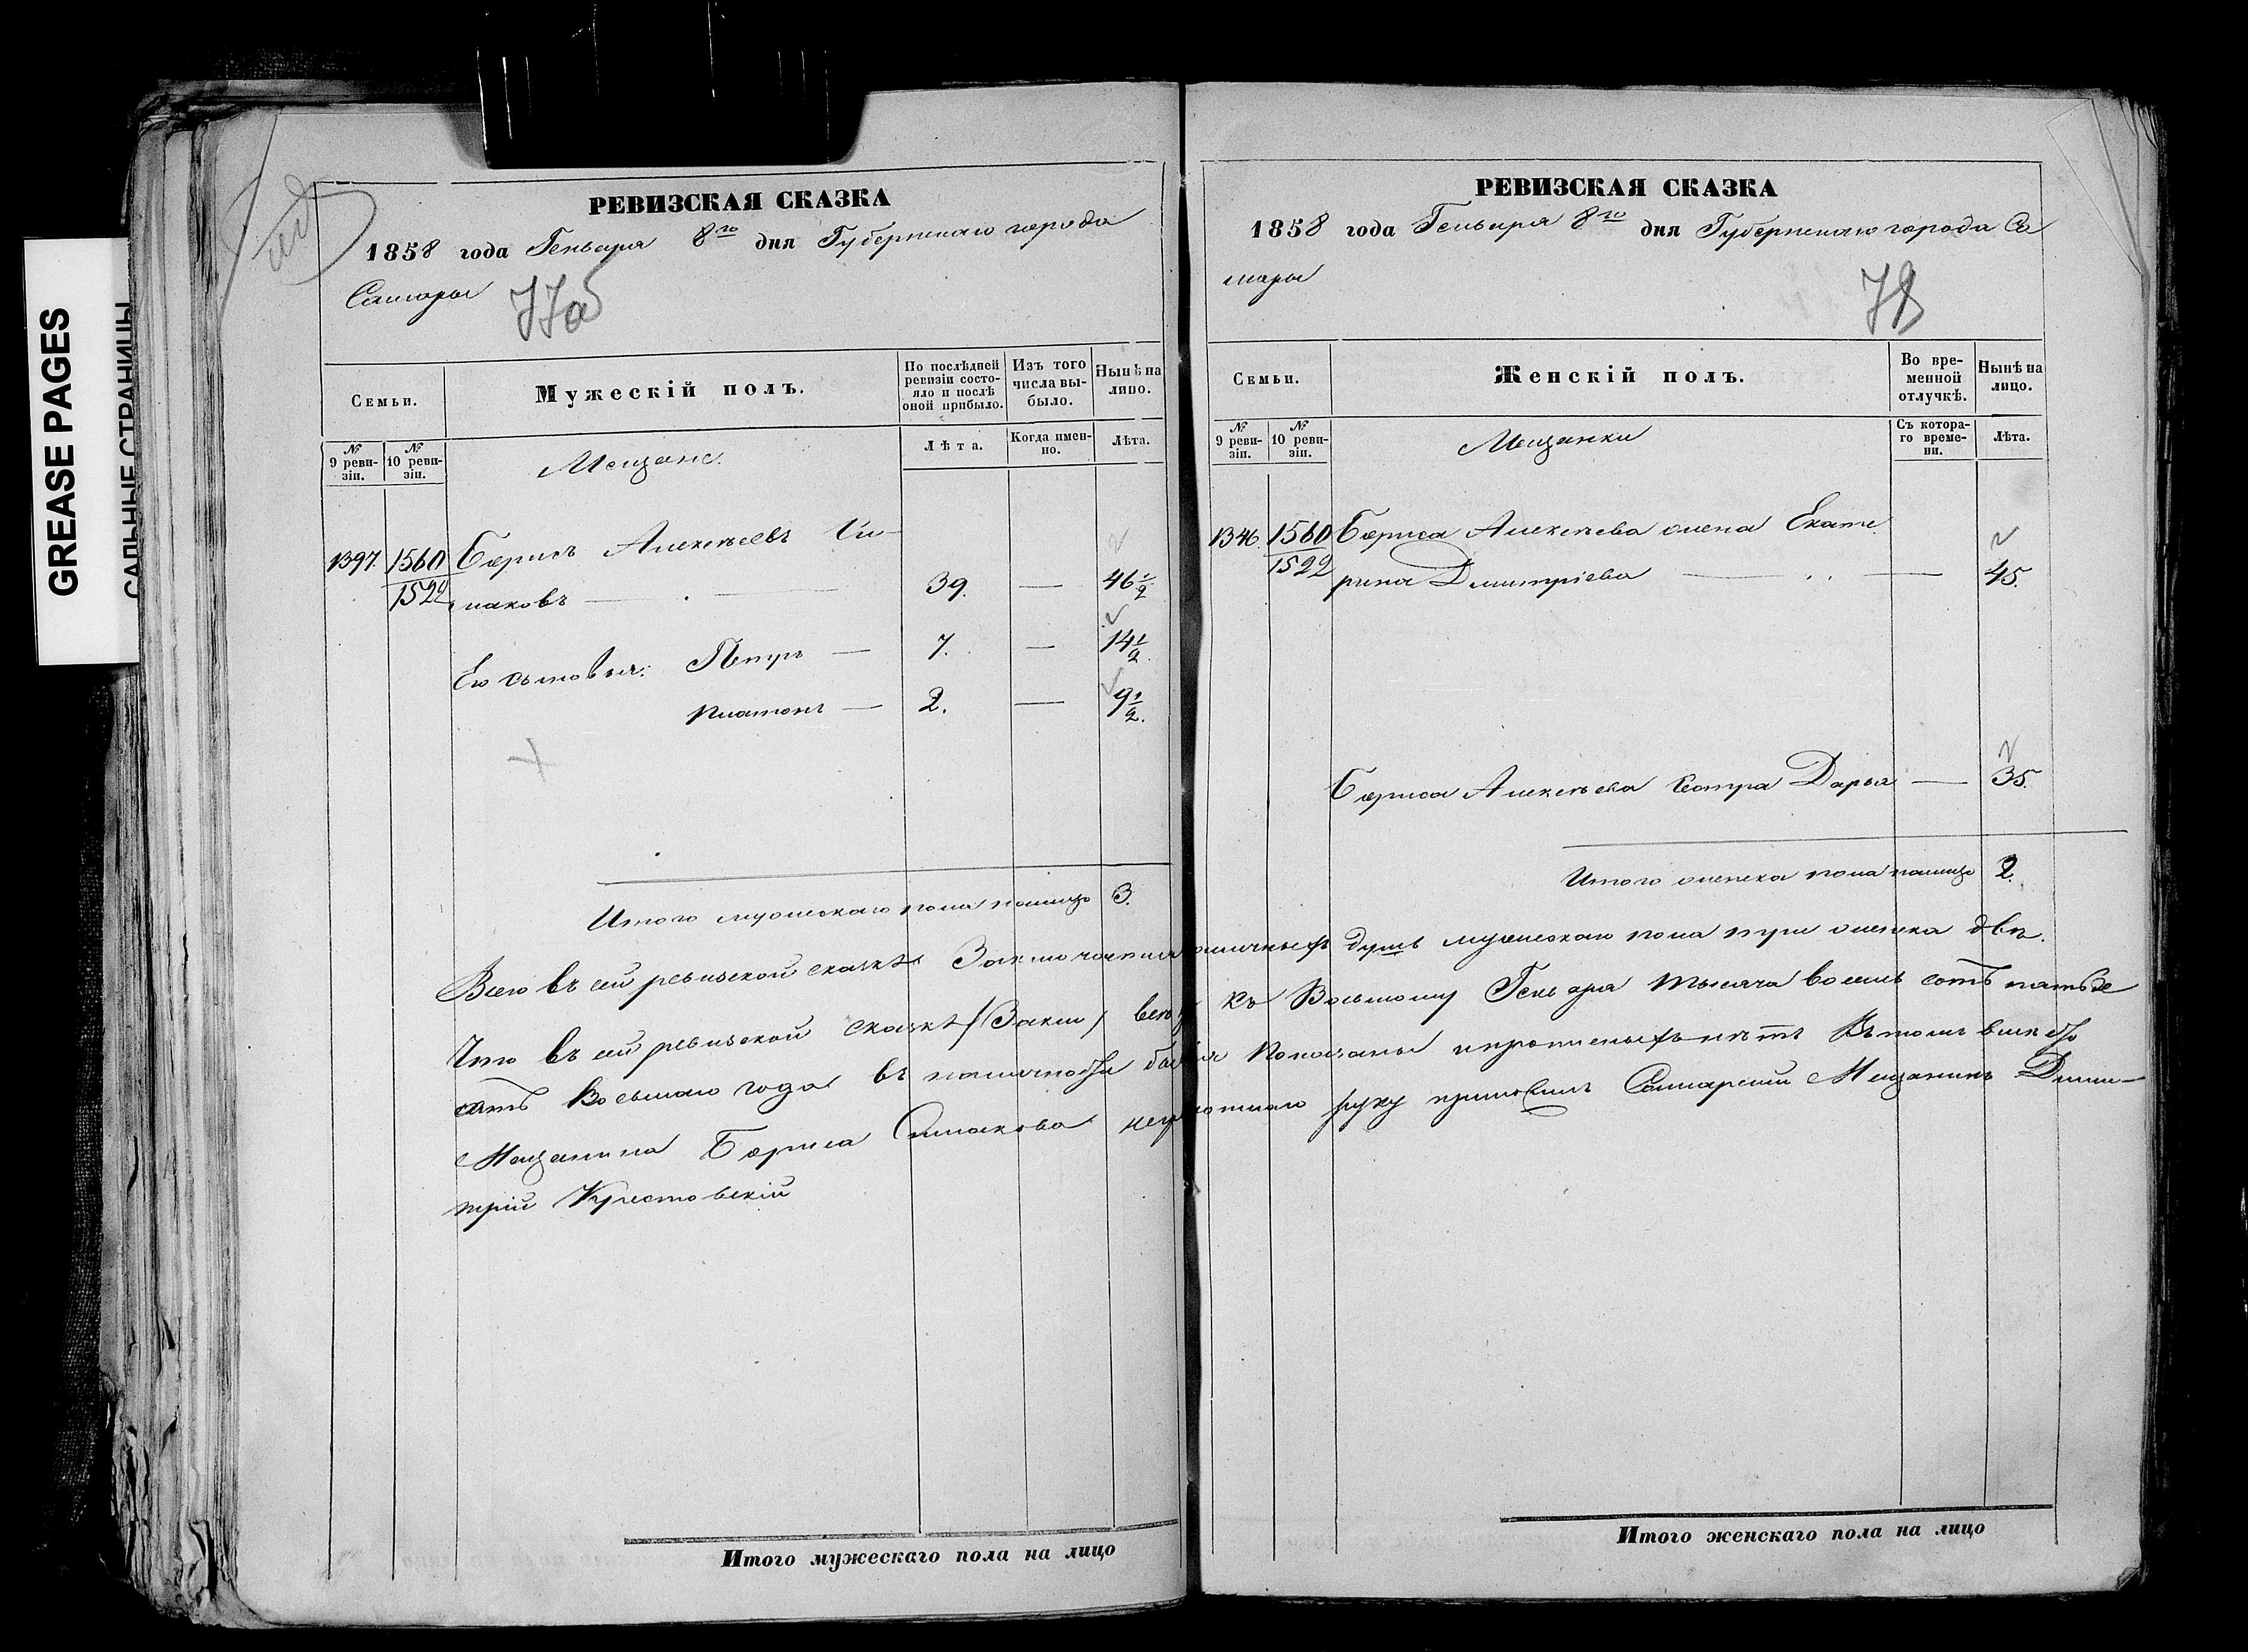 GREASE PAGES
САЛЬНЫЕ СТРАНИЦЫ
РЕВИЗСКАЯ СКАЗКА
1858 года Генваря 8го дня Губернскаго города
Самары
77об
Семьи.
Мужескій полъ.
По послѣдней ревизіи состояло и послѣ оной прибыло.
Изъ того числа выбыло.
Нынѣ на лицо.
№ 9 ревизіи.
№ 10 ревизіи.
Мещане.
Лѣта.
Когда именно.
Лѣта.
1397. 1560 Борисъ Алексѣевъ Си-
1522 маковъ — 39. — 46 1/2
Его сыновья: Петръ — 7. — 14 1/2.
Платонъ — 2. — 9 1/2.
Итого мужескаго пола налицо 3.
РЕВИЗСКАЯ СКАЗКА
1858 года Генваря 8го дня Губернскаго города Са
мары
78
Семьи.
Женскій полъ.
Во временной отлучкѣ.
Нынѣ на лицо.
№ 9 ревизіи.
№ 10 ревизіи.
Мещанки
Съ котораго времени.
Лѣта.
1346. 1560 Бориса Алексѣева жена Екате
1522 рина Дмитріева — 45.
Бориса Алексѣева сестра Дарья — 35.
Итого женска пола налицо 2.
Всего въ сей ревизской сказкѣ Заключается наличныхъ душъ мужескаго пола три женска двѣ.
Что въ сей ревизской сказкѣ всѣ къ Восьмому Генваря тысяча восемь сотъ пятьде
сятъ Восьмаго года въ наличности показаны и прописныхъ нѣтъ Въ томъ вмѣсто
Мещанина Бориса Симакова неграмотнаго руку приложилъ Самарский Мещанинъ Дми-
трій Крестовскій
Итого мужескаго пола на лицо
Итого женскаго пола на лицо